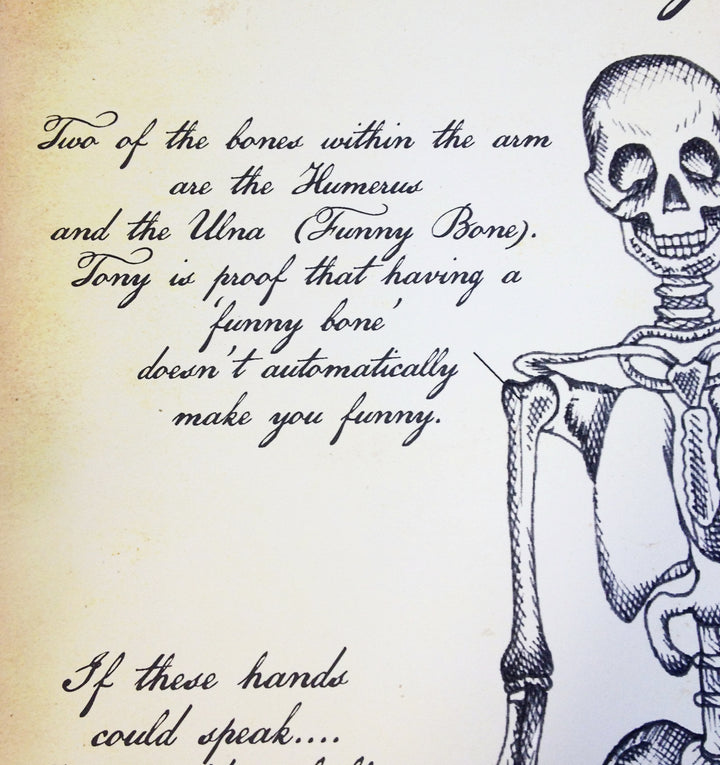 Two of the bones within the arm
are the Humerus
and the Ulna (Funny Bone).
Tony is proof that having a
'funny bone'
doesn't automatically
make you funny.
If these hands
could speak....